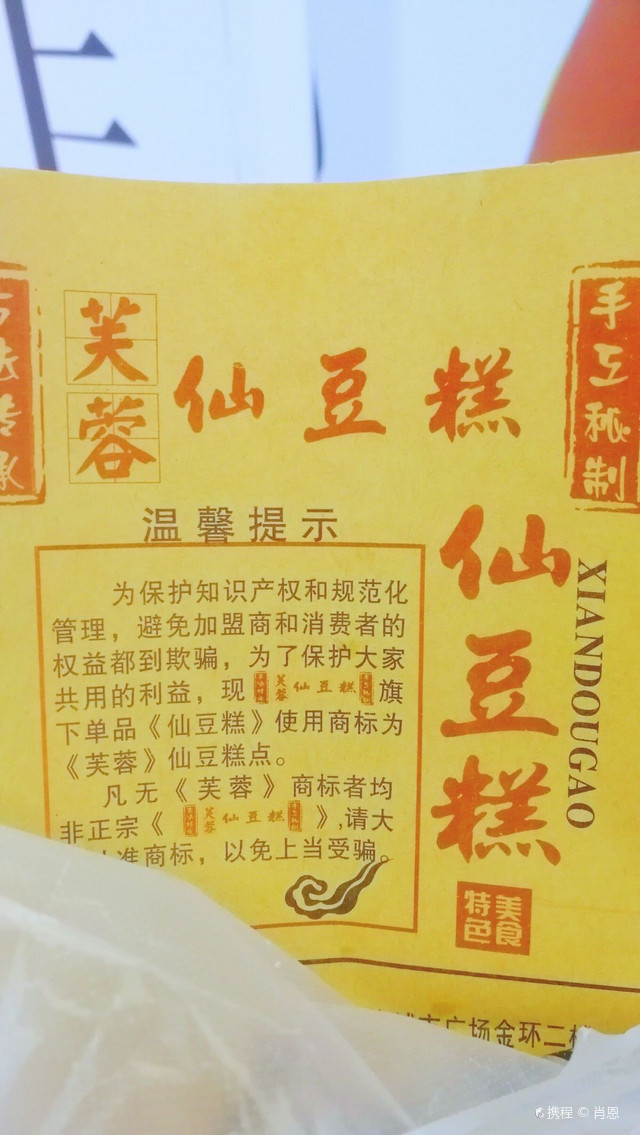 上
古法传承
芙蓉
仙豆糕
手工秘制
温馨提示
为保护知识产权和规范化
管理，避免加盟商和消费者的
权益都到欺骗，为了保护大家
共用的利益，现 芙蓉仙豆糕 旗
下单品《仙豆糕》使用商标为
《芙蓉》仙豆糕点。
凡无《芙蓉》商标者均
非正宗《 芙蓉仙豆糕 》,请大
准商标，以免上当受骗。
仙豆糕
XIANDOUGAO
特色美食
市广场金环二楼
携程 © 肖恩